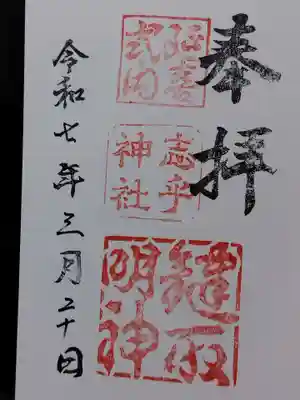 奉拝
延喜
式内
志乎
神社
縫取
明神
令和七年三月二十日